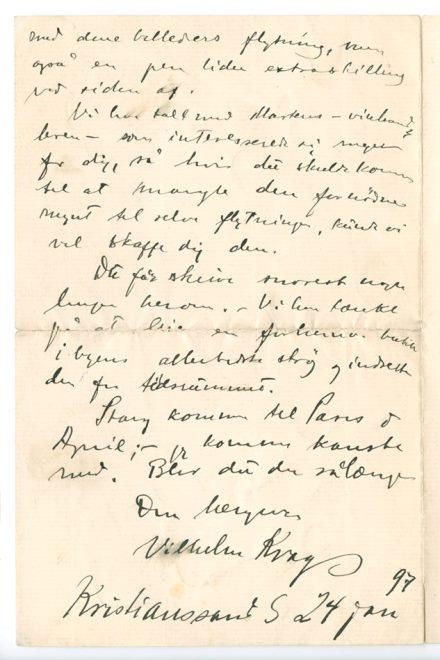 med dine billeders flytning, var
også en pen liden extraskilling
ved siden af.
Vi har talt med Martens – vinhand
leren – som interesserede sig meget
for dig, så hvis det skulde komme
til at mangle den fornødne
mynt til selve flytningen, kunde vi
vel skaffe dig den.
Du får skrive snarest nogle
linjer herom. – Vi har tænkt
på at leie en butik
i byens allerbedste strøg og indrette
den for
Stang kommer til Paris d
April; – jeg kommer kanske
med. Blir du der sålænge
Din hengivne
Vilhelm Krag
Kristianssand S 24 jan 97